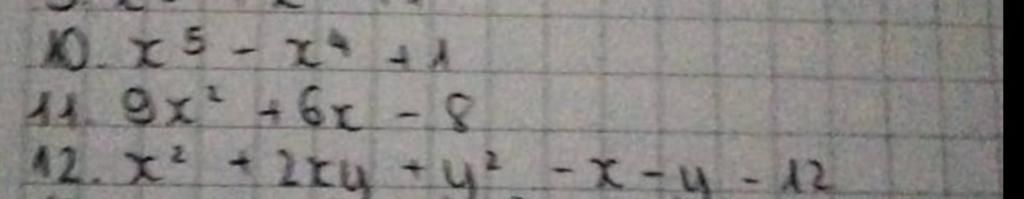 10. x⁵ - x⁴ + 1
11. 9x² + 6x - 8
12. x² + 2xy + y² - x - y - 12